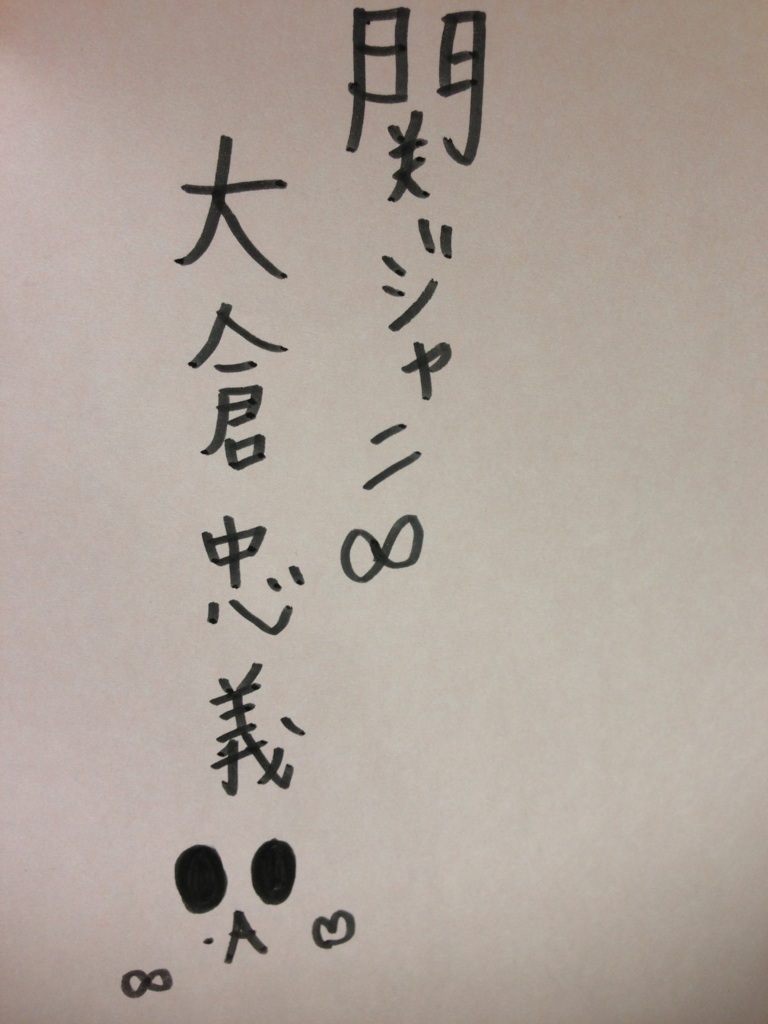 関ジャニ∞
大倉忠義
.A
∞